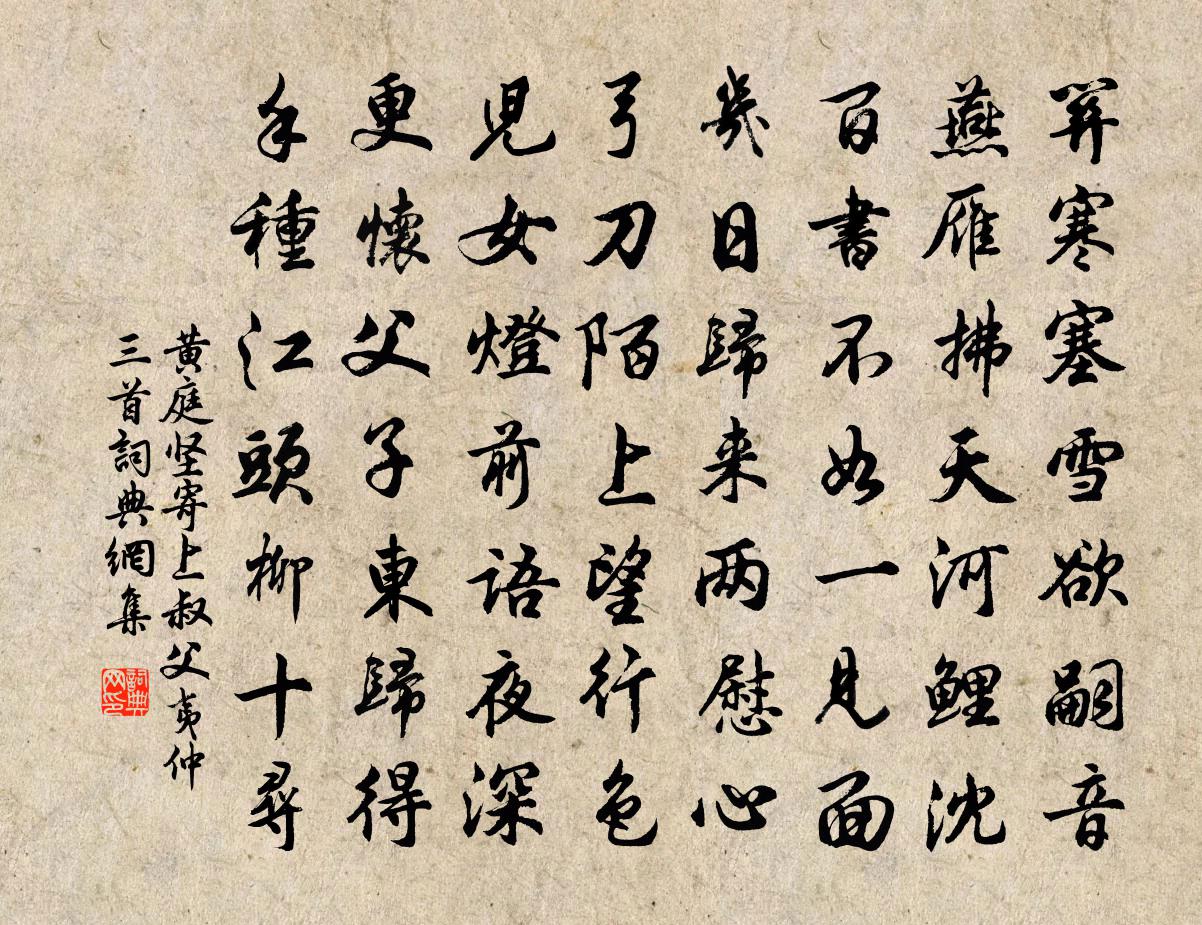 筭寒塞雪欲嗣音
燕雁拂天河鲤沈
百書不如一見面
幾日歸来两慰心
弓刀陌上望行色
児女燈前語夜深
更懷父子東歸得
手種江頭柳十尋
黄庭坚寄上叔父夷仲
三首詞典網集
詞典
网印